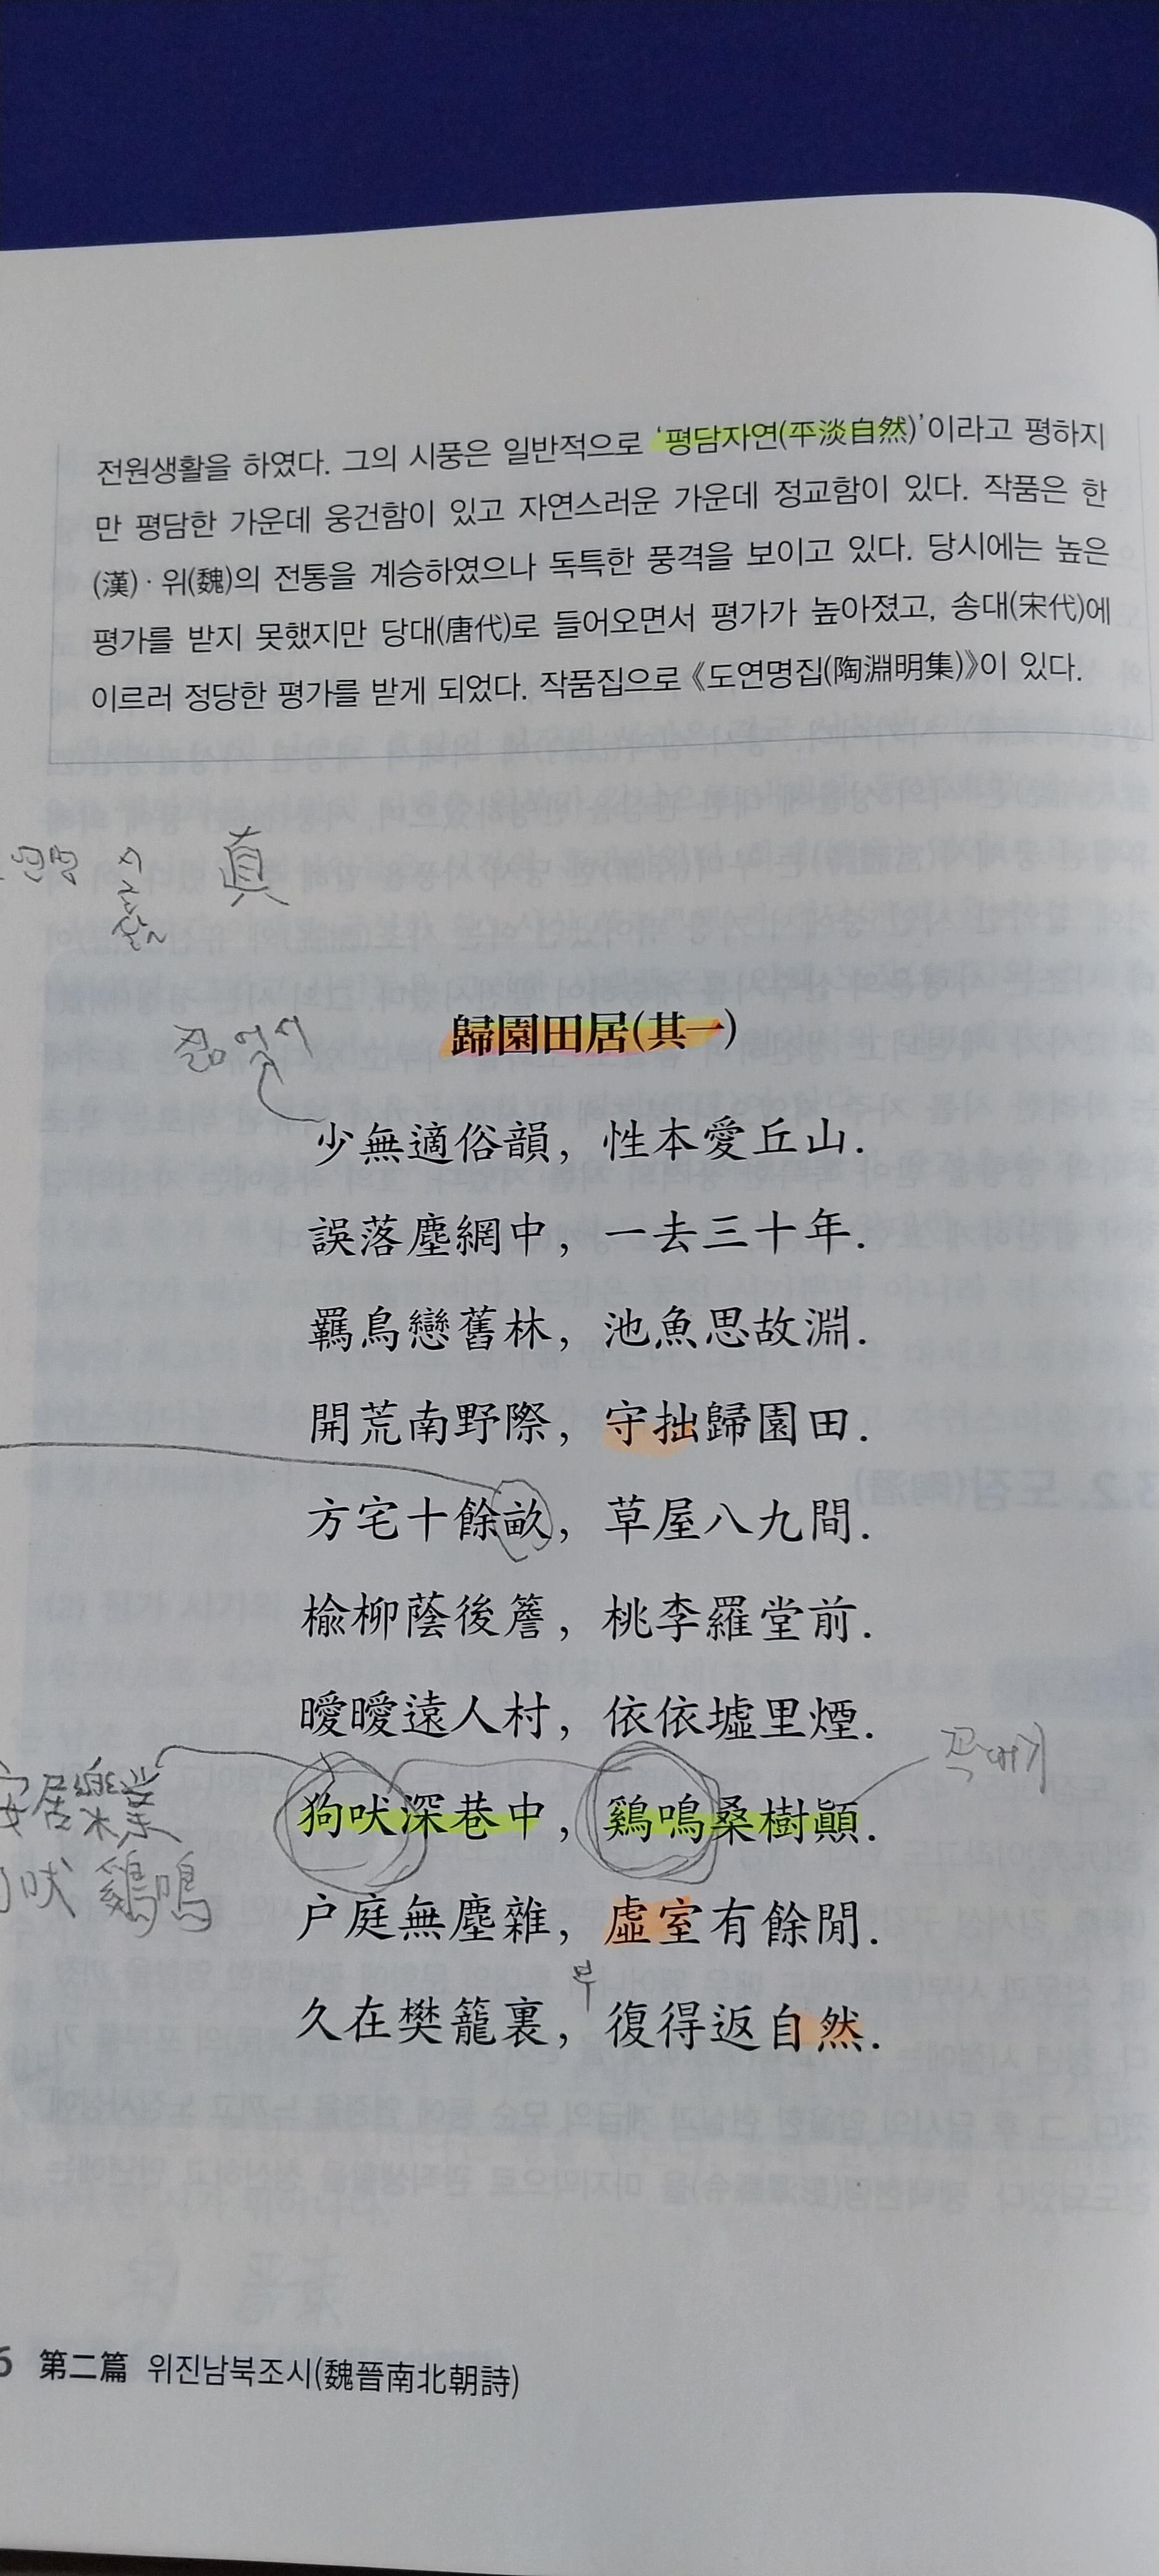 전원생활을 하였다. 그의 시풍은 일반적으로 '평담자연(平淡自然)'이라고 평하지
만 평담한 가운데 웅건함이 있고 자연스러운 가운데 정교함이 있다. 작품은 한
(漢)·위(魏)의 전통을 계승하였으나 독특한 풍격을 보이고 있다. 당시에는 높은
평가를 받지 못했지만 당대(唐代)로 들어오면서 평가가 높아졌고, 송대(宋代)에
이르러 정당한 평가를 받게 되었다. 작품집으로 《도연명집(陶淵明集)》이 있다.
연명 眞
젊었을 때
歸園田居(其一)
少無適俗韻, 性本愛丘山.
誤落塵網中, 一去三十年.
羈鳥戀舊林, 池魚思故淵.
開荒南野際, 守拙歸園田.
方宅十餘畝, 草屋八九間.
楡柳蔭後簷, 桃李羅堂前.
曖曖遠人村, 依依墟里煙.
꼭대기
安居樂業
狗吠深巷中, 鷄鳴桑樹顚.
吠 鷄鳴
户庭無塵雜, 虛室有餘閒.
부
久在樊籠裏, 復得返自然.
6 第二篇 위진남북조시(魏晉南北朝詩)